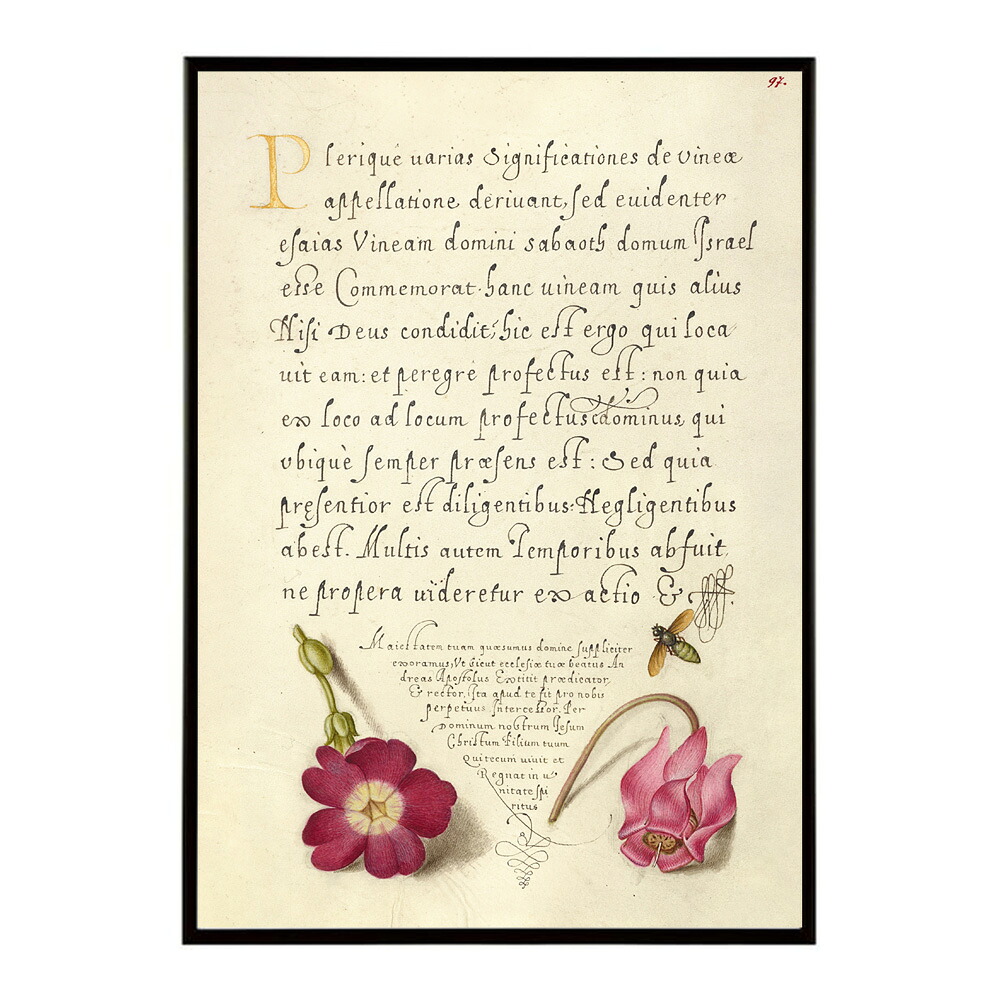 97.
Plerique uarias Significationes de vineæ
appellatione deriuant, sed euidenter
esaias Vineam domini sabaoth domum Israel
esse Commemorat. hanc uineam quis alius
Nisi Deus condidit, hic est ergo qui loca
uit eam: et peregrè profectus est: non quia
ex loco ad locum profectus dominus, qui
vbiquè semper præsens est: Sed quia
pręsentior est diligentibus: Negligentibus
abest. Multis autem Temporibus abfuit,
ne propera uideretur exactio &
Maiestatem tuam quæsumus domine suppliciter
exoramus, Vt sicut ecclesiæ tuæ beatus An
dreas Apostolus Extitit prædicator
& rector, Ita apud te sit pro nobis
perpetuus Intercessor. Per
Dominum nostrum Iesum
Christum Filium tuum
Qui tecum uiuit et
Regnat in u
nitate spi
ritus